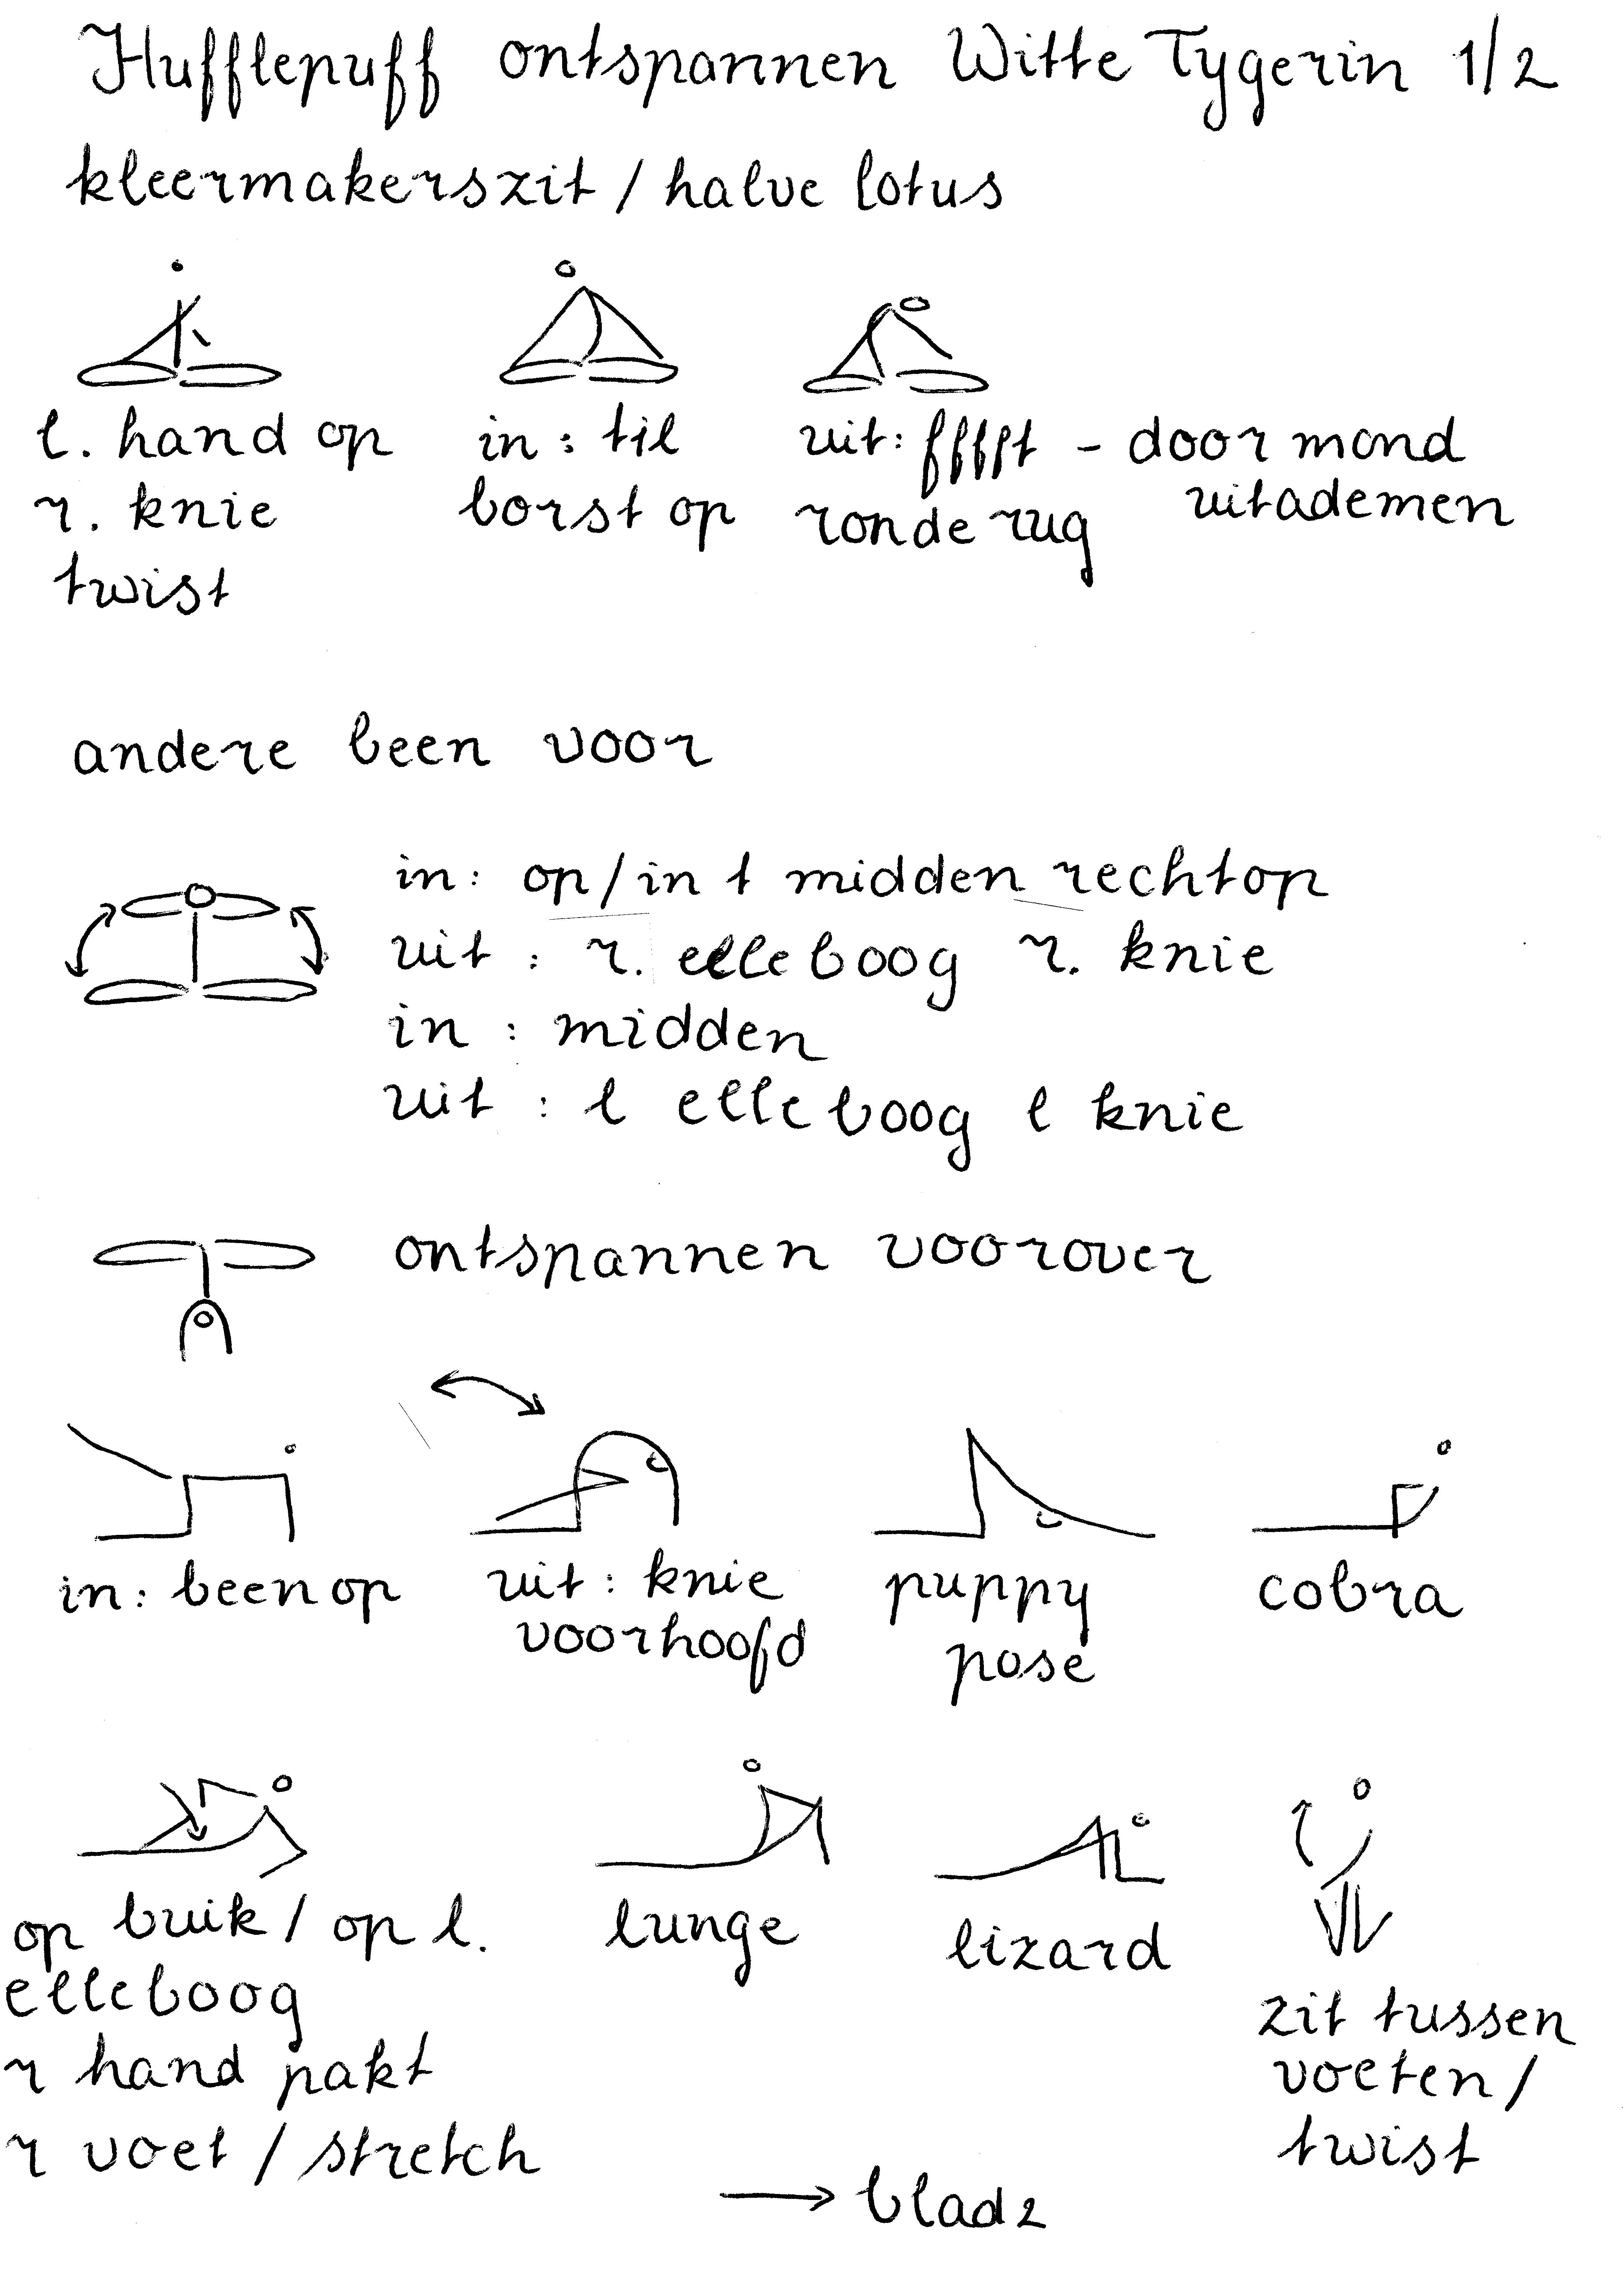 Hufflepuff ontspannen Witte Tygerin 1/2
kleermakerszit / halve lotus
l. hand op
r. knie
twist
in: til
borst op
uit: fffft - door mond
uitademen
ronde rug
andere been voor
in: op/in t midden rechtop
uit: r. elleboog r. knie
in: midden
uit: l elleboog l knie
ontspannen voorover
in: been op
uit: knie
voorhoofd
puppy
pose
cobra
op buik / op l.
elleboog
r hand pakt
r voet / stretch
lunge
lizard
zit tussen
voeten /
twist
→ blad 2